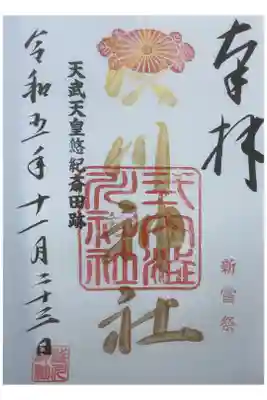 奉拝
新嘗祭
渋川神社
式内澁
川神社
天武天皇悠紀斎田跡
令和五年十一月二十三日